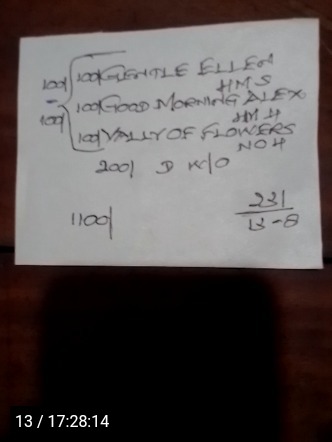 100/ 100/ GENTLE ELLEN
HMS
100/ 100/ GOOD MORNING ALEX
HM H
100/ VALLY OF FLOWERS
NOH
200/ D K/O
1100/
231
13-8
13 / 17:28:14